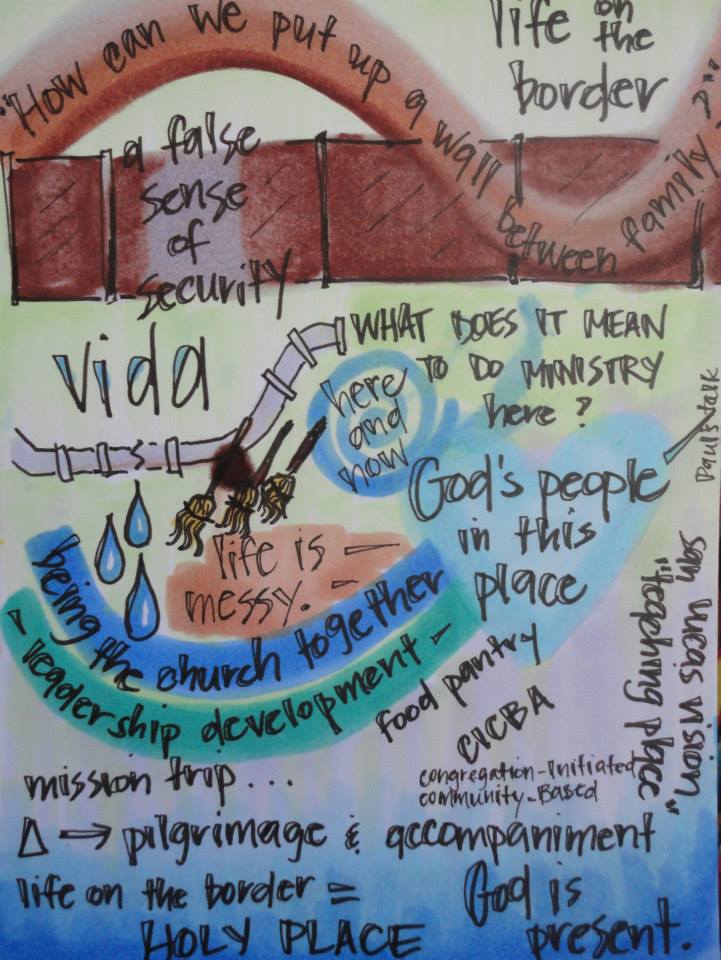 "How can we put up a wall between family?"
life on
the
border
a false
sense
of
security
vida
WHAT DOES IT MEAN
TO DO MINISTRY
here?
here
and
now
God's people
in this
place
Paul's talk
life is —
messy. —
being the church together
- leadership development -
food pantry
CICBA
congregation-initiated
community-Based
san lucas vision
"teaching place"
mission trip...
Δ → pilgrimage & accompaniment
life on the border =
HOLY PLACE
God is
present.